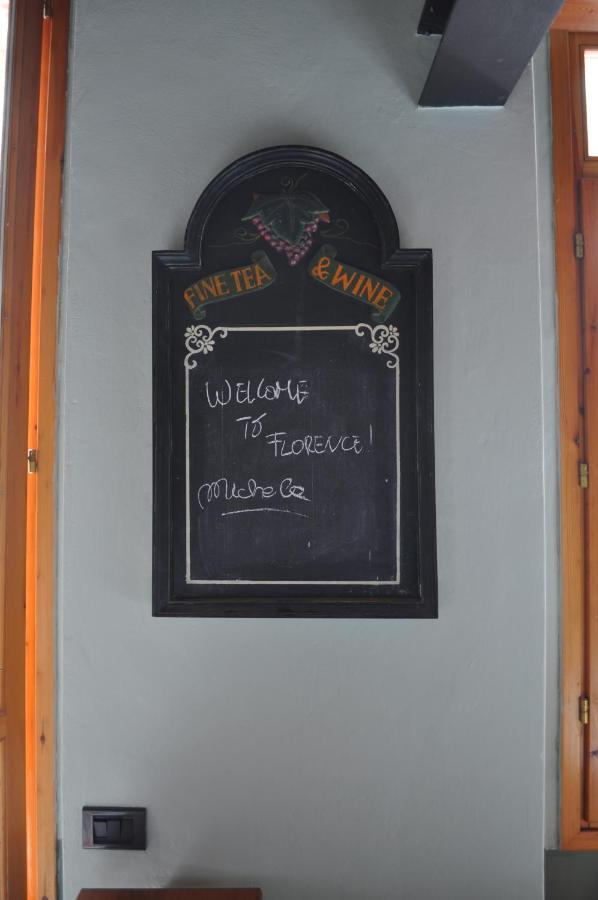 FINE TEA & WINE
WELCOME
TO
FLORENCE!
Michela